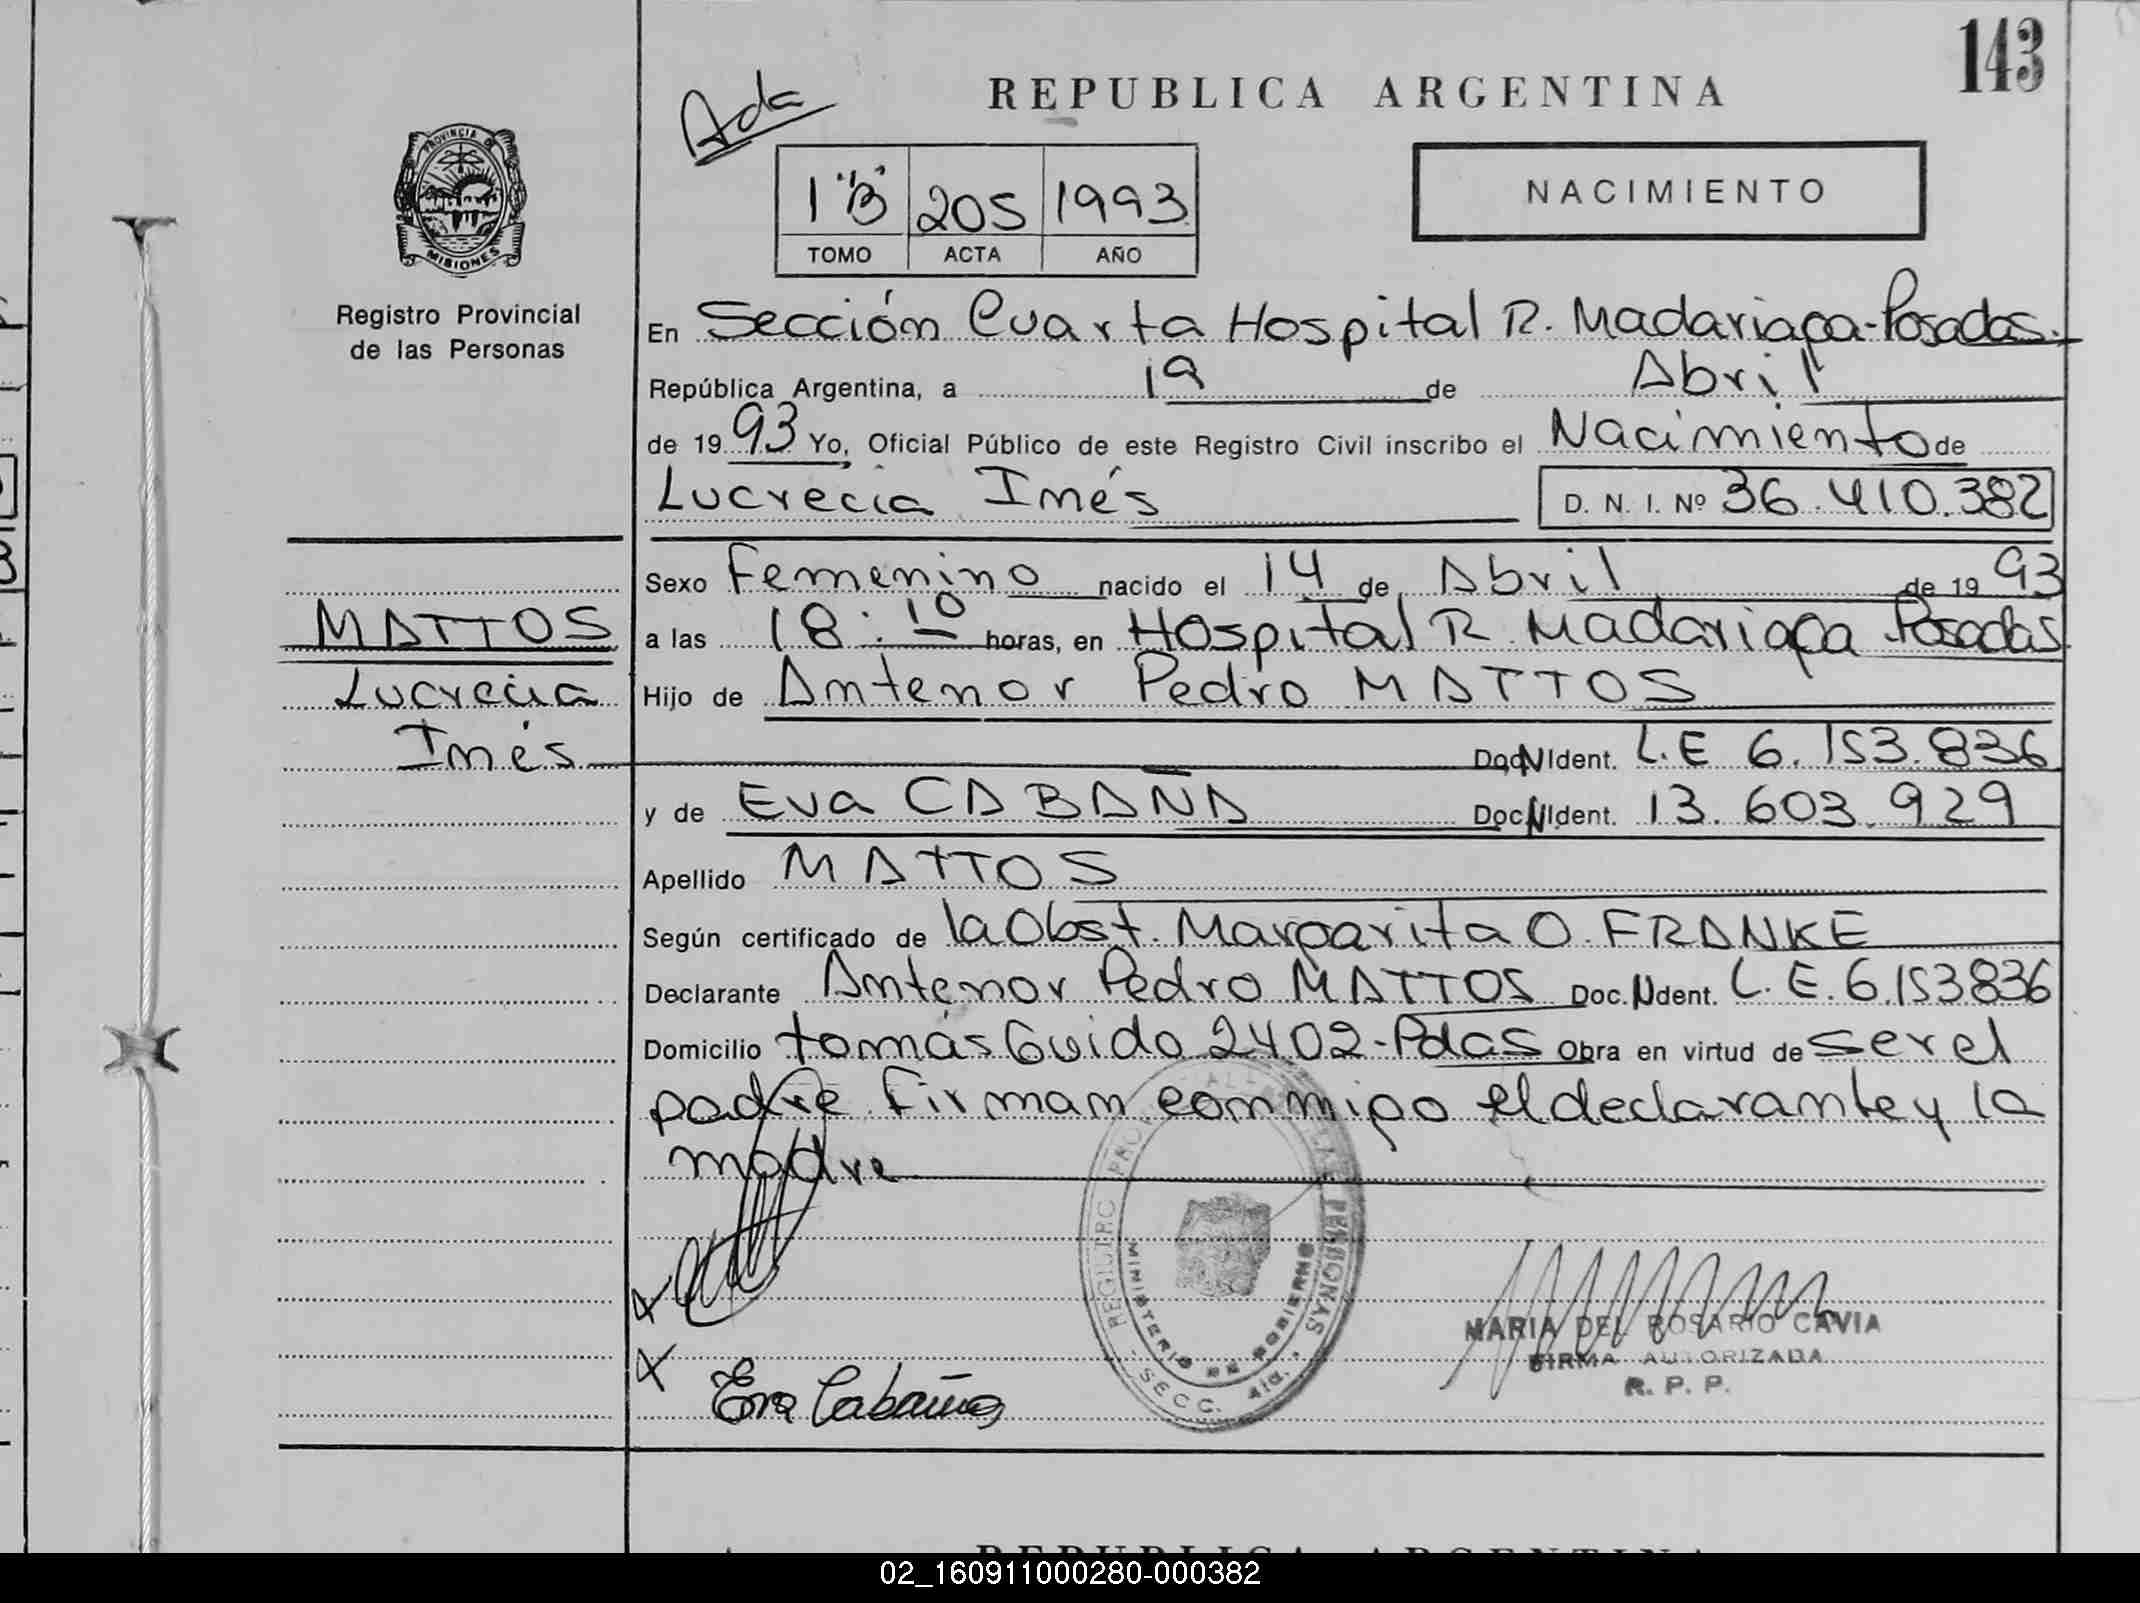 143
REPUBLICA ARGENTINA
Ada
NACIMIENTO
1 "B" 205 1993
TOMO ACTA AÑO
PROVINCIA DE
MISIONES
Registro Provincial
de las Personas
En Sección Cuarta Hospital R. Madariaga-Posadas.
República Argentina, a 19 de Abril
de 1993 Yo, Oficial Público de este Registro Civil inscribo el Nacimiento de
Lucrecia Inés D. N. I. Nº 36.410.382
Sexo Femenino nacido el 14 de Abril de 1993
a las 18:10 horas, en Hospital R. Madariaga Posadas
Hijo de Antenor Pedro MATTOS
Doc N Ident. L.E 6.153.836
y de Eva CABAÑA Doc N Ident. 13.603.929
Apellido MATTOS
Según certificado de la Obst. Margarita O. FRANKE
Declarante Antenor Pedro MATTOS Doc. N Ident. L.E. 6.153836
Domicilio tomás Guido 2402-Pdas Obra en virtud de ser el
padre. Firman conmigo el declarante y la
madre
MATTOS
Lucrecia
Inés
X
X
Eva Cabaña
MINISTERIO DE GOBIERNO
SECC. 4ta.
MARIA DEL ROSARIO CAVIA
FIRMA AUTORIZADA
R. P. P.
REPUBLICA ARGENTINA
02_160911000280-000382